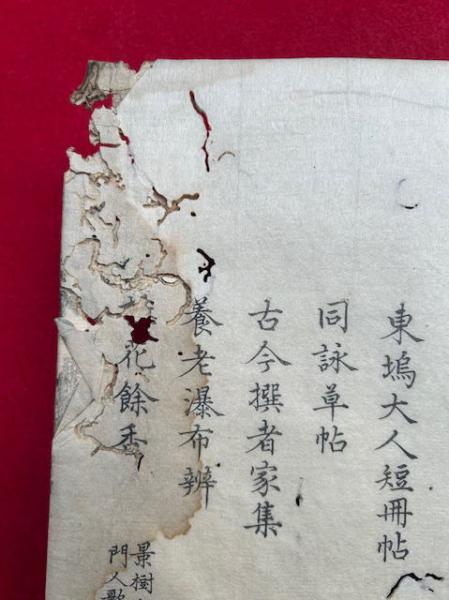 東塢大人短冊帖
同詠草帖
古今撰者家集
養老瀑布辨
花餘香
景樹
門人歌